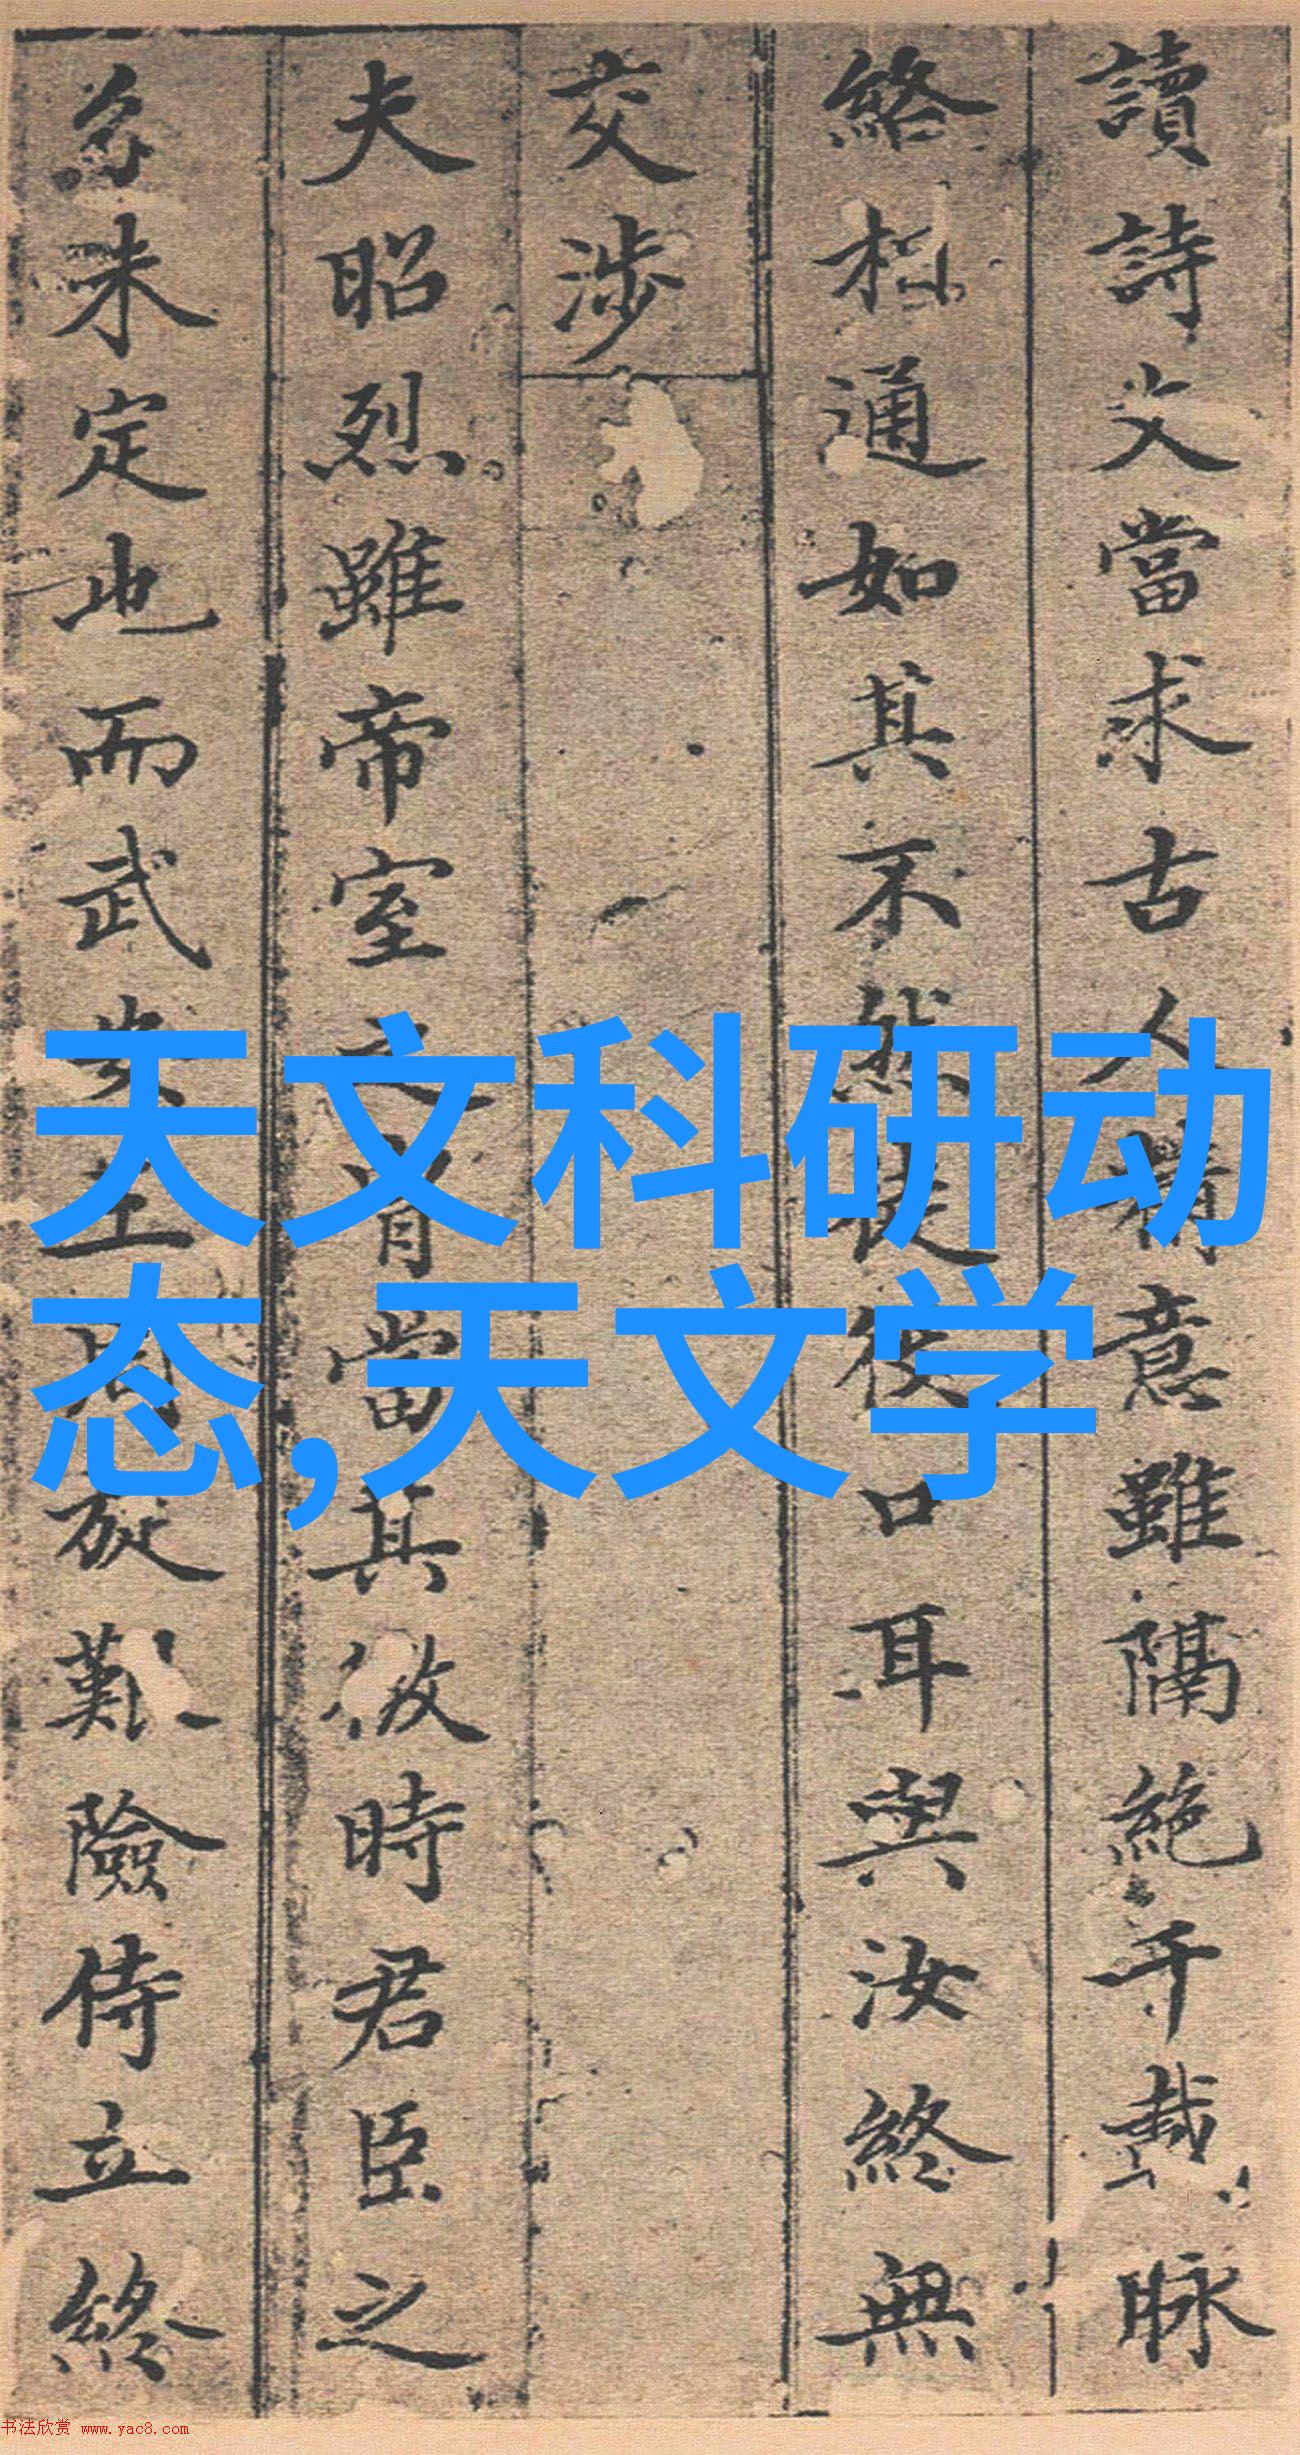 讀詩文當求古人精意雖隔絶千載脉
絡相通如其不然徒使口耳與汝終無
交涉
夫昭烈雖帝室之胄當其微時君臣之
分未定也而武安王周旋艱險侍立終
天文科研动
态,天文学
书法欣赏 www.yac8.com